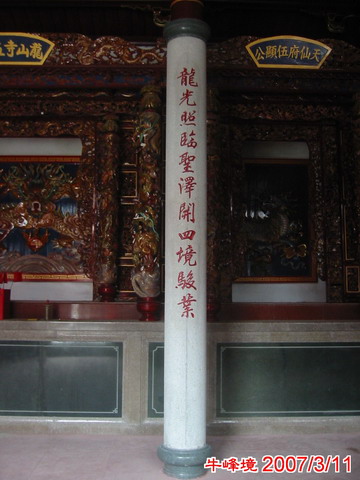 龍山寺五
天仙府伍顯公
龍光照臨聖澤開四境駿業
牛峰境 2007/3/11